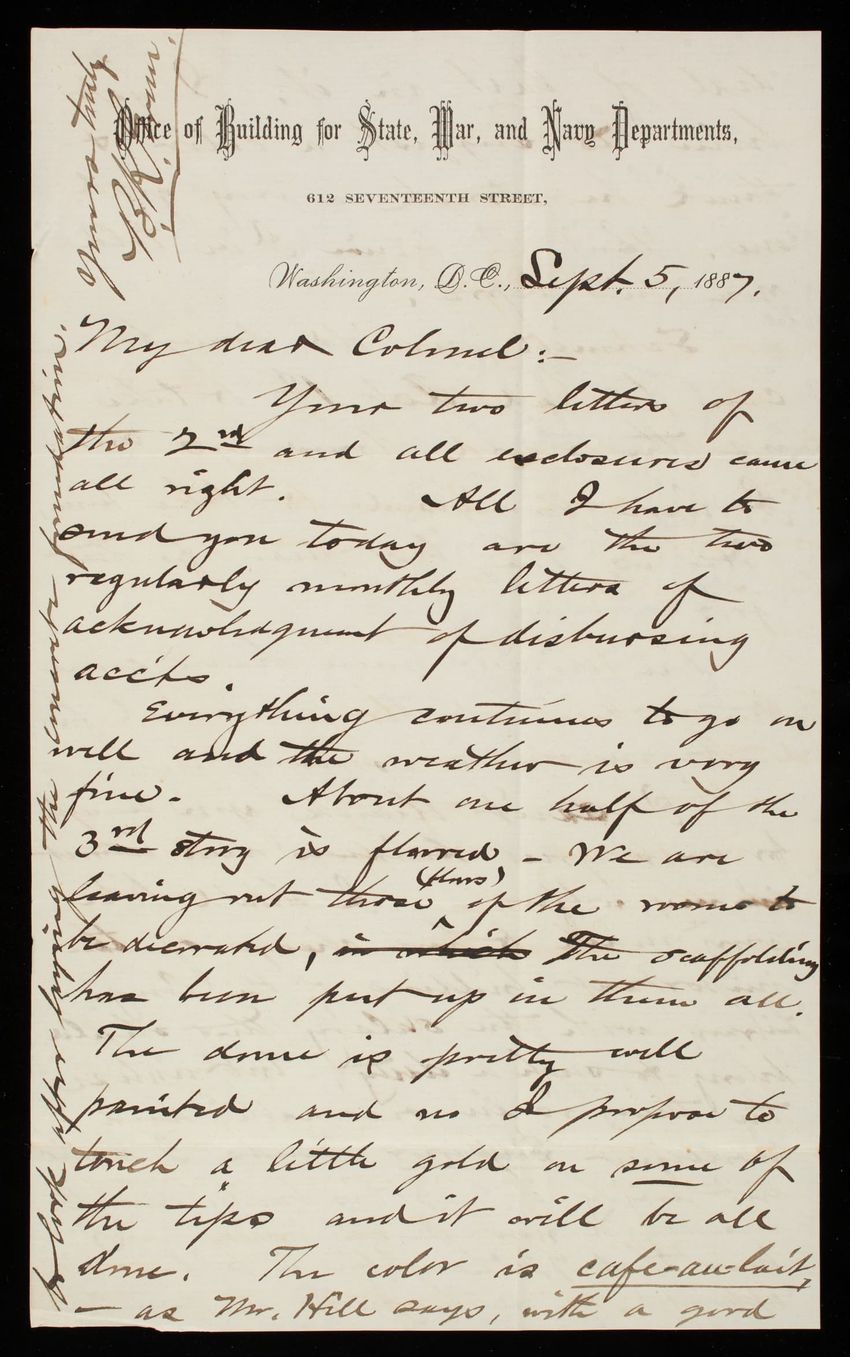 Office of Building for State, War, and Navy Departments,
612 SEVENTEENTH STREET,
Washington, D.C., Sept. 5, 1887.
My dear Colonel:—
Your two letters of
the 2nd and all enclosures came
all right. All I have to
send you today are the two
regularly monthly letters of
acknowledgment of disbursing
acc'ts.
Everything continues to go on
well and the weather is very
fine. About one half of the
3rd story is floored — We are
leaving out those (floors) of the rooms to
be decorated, in which The scaffolding
has been put up in them all.
The dome is pretty well
painted and so I propose to
touch a little gold on some of
the tips and it will be all
done. The color is cafe-au-lait,
— as Mr. Hill says, with a good
to look after laying the concrete foundation.
Yours truly
B.R.